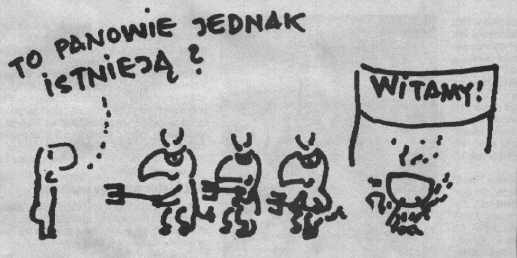 TO PANOWIE JEDNAK
ISTNIEJĄ?
WITAMY!